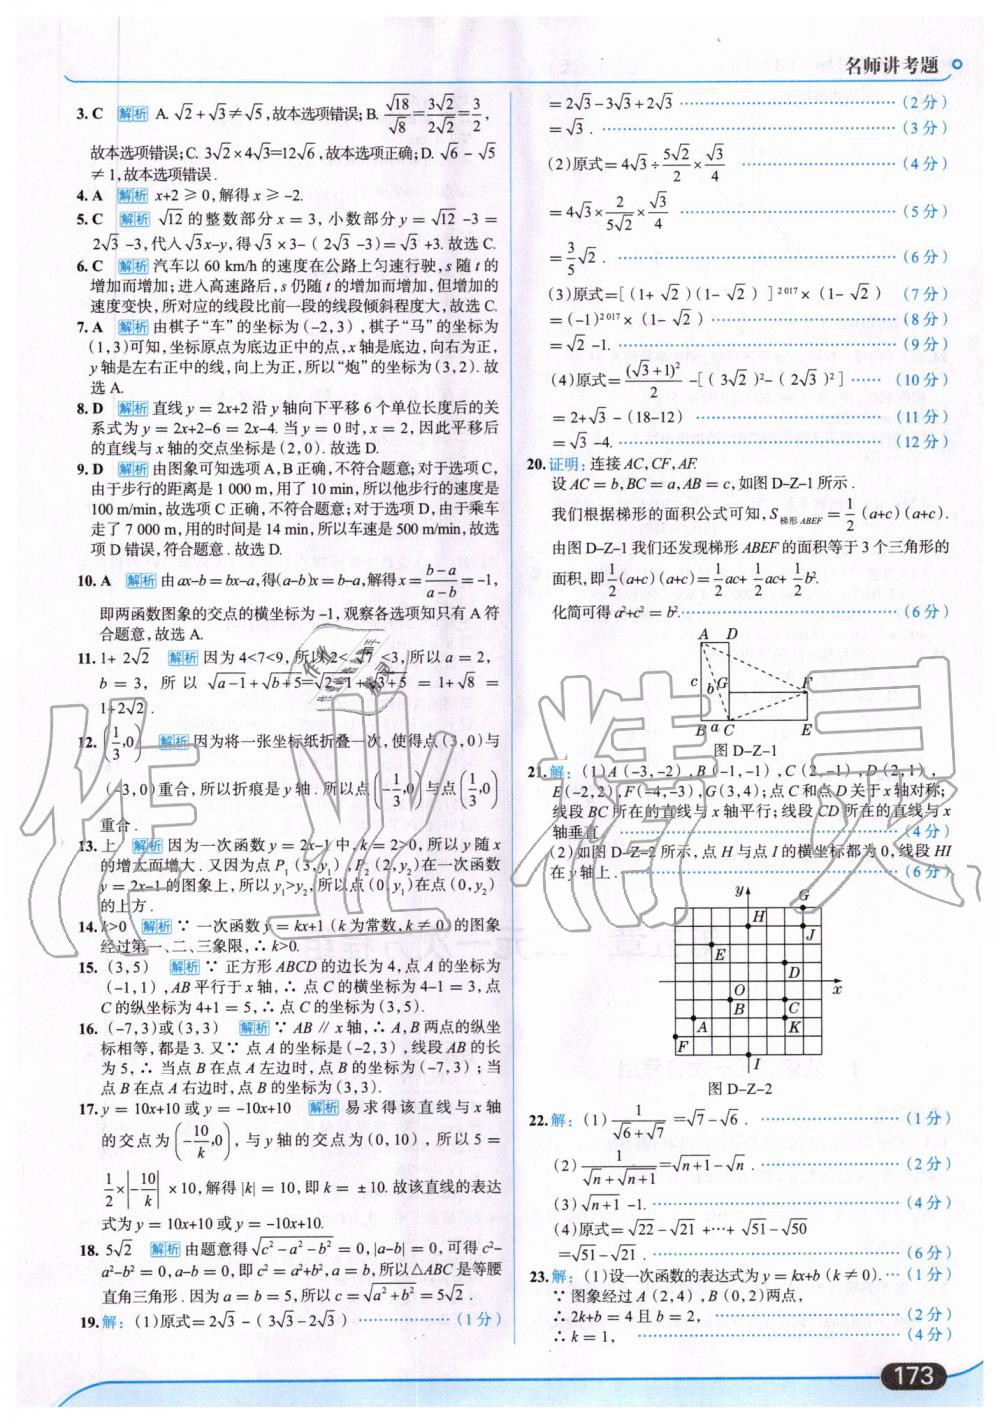 名师讲考题
3. C 解析 A. √2+√3≠√5,故本选项错误;B. √18/√8=3√2/2√2=3/2,
故本选项错误;C. 3√2×4√3=12√6,故本选项正确;D. √6-√5
≠1,故本选项错误.
4. A 解析 x+2≥0,解得x≥-2.
5. C 解析 √12的整数部分x=3,小数部分y=√12-3=
2√3-3,代入√3x-y,得√3×3-(2√3-3)=√3+3.故选C.
6. C 解析 汽车以60 km/h的速度在公路上匀速行驶,s随t的
增加而增加;进入高速路后,s仍随t的增加而增加,但增加的
速度变快,所对应的线段比前一段的线段倾斜程度大,故选C.
7. A 解析 由棋子“车”的坐标为(-2,3),棋子“马”的坐标为
(1,3)可知,坐标原点为底边正中的点,x轴是底边,向右为正,
y轴是左右正中的线,向上为正,所以“炮”的坐标为(3,2).故
选A.
8. D 解析 直线y=2x+2沿y轴向下平移6个单位长度后的关
系式为y=2x+2-6=2x-4.当y=0时,x=2,因此平移后
的直线与x轴的交点坐标是(2,0).故选D.
9. D 解析 由图象可知选项A,B正确,不符合题意;对于选项C,
由于步行的距离是1 000 m,用了10 min,所以他步行的速度是
100 m/min,故选项C正确,不符合题意;对于选项D,由于乘车
走了7 000 m,用的时间是14 min,所以车速是500 m/min,故选
项D错误,符合题意.故选D.
10. A 解析 由ax-b=bx-a,得(a-b)x=b-a,解得x=(b-a)/(a-b)=-1,
即两函数图象的交点的横坐标为-1,观察各选项知只有A符
合题意,故选A.
11. 1+2√2 解析 因为4<7<9,所以2<√7<3,所以a=2,
b=3,所以√a-1+√b+5=√2-1+√3+5=1+√8=
1+2√2.
12. (1/3,0) 解析 因为将一张坐标纸折叠一次,使得点(3,0)与
(-3,0)重合,所以折痕是y轴.所以点(-1/3,0)与点(1/3,0)
重合.
13. 上 解析 因为一次函数y=2x-1中,k=2>0,所以y随x
的增大而增大.又因为点P₁(3,y₁),P₂(2,y₂)在一次函数
y=2x-1的图象上,所以y₁>y₂,所以点(0,y₁)在点(0,y₂)
的上方.
14. k>0 解析 ∵一次函数y=kx+1(k为常数,k≠0)的图象
经过第一、二、三象限,∴k>0.
15. (3,5) 解析 ∵正方形ABCD的边长为4,点A的坐标为
(-1,1),AB平行于x轴,∴点C的横坐标为4-1=3,点
C的纵坐标为4+1=5,∴点C的坐标为(3,5).
16. (-7,3)或(3,3) 解析 ∵AB∥x轴,∴A,B两点的纵坐
标相等,都是3.又∵点A的坐标是(-2,3),线段AB的长
为5,∴当点B在点A左边时,点B的坐标为(-7,3);当
点B在点A右边时,点B的坐标为(3,3).
17. y=10x+10或y=-10x+10 解析 易求得该直线与x轴
的交点为(-10/k,0),与y轴的交点为(0,10),所以5=
1/2×|-10/k|×10,解得|k|=10,即k=±10.故该直线的表达
式为y=10x+10或y=-10x+10.
18. 5√2 解析 由题意得√c²-a²-b²=0,|a-b|=0,可得c²-
a²-b²=0,a-b=0,即c²=a²+b²,a=b,所以△ABC是等腰
直角三角形.因为a=b=5,所以c=√a²+b²=5√2.
19. 解:(1)原式=2√3-(3√3-2√3)………………(1分)
=2√3-3√3+2√3 ………………(2分)
=√3.………………(3分)
(2)原式=4√3÷5√2/2×√3/4 ………………(4分)
=4√3×2/5√2×√3/4 ………………(5分)
=3/5√2.………………(6分)
(3)原式=[(1+√2)(1-√2)]²⁰¹⁷×(1-√2) (7分)
=(-1)²⁰¹⁷×(1-√2)………………(8分)
=√2-1.………………(9分)
(4)原式=(√3+1)²/2-[(3√2)²-(2√3)²]……(10分)
=2+√3-(18-12)………………(11分)
=√3-4.………………(12分)
20. 证明:连接AC,CF,AF.
设AC=b,BC=a,AB=c,如图D-Z-1所示.
我们根据梯形的面积公式可知,S梯形ABEF=1/2(a+c)(a+c).
由图D-Z-1我们还发现梯形ABEF的面积等于3个三角形的
面积,即1/2(a+c)(a+c)=1/2ac+1/2ac+1/2b².
化简可得a²+c²=b².………………(6分)
A D
c b G F
B a C E
图D-Z-1
21. 解:(1)A(-3,-2),B(-1,-1),C(2,-1),D(2,1),
E(-2,2),F(-4,-3),G(3,4);点C和点D关于x轴对称;
线段BC所在的直线与x轴平行;线段CD所在的直线与x
轴垂直.………………(4分)
(2)如图D-Z-2所示,点H与点I的横坐标都为0,线段HI
在y轴上.………………(6分)
y G
H J
E
D
O x
B C
A K
F
I
图D-Z-2
22. 解:(1)1/(√6+√7)=√7-√6.………………(1分)
(2)1/(√n+√n+1)=√n+1-√n.………………(2分)
(3)√n+1-1.………………(4分)
(4)原式=√22-√21+…+√51-√50
=√51-√21.………………(6分)
23. 解:(1)设一次函数的表达式为y=kx+b(k≠0).…(1分)
∵图象经过A(2,4),B(0,2)两点,
∴2k+b=4且b=2,………………(2分)
∴k=1,………………(4分)
173
作业精灵